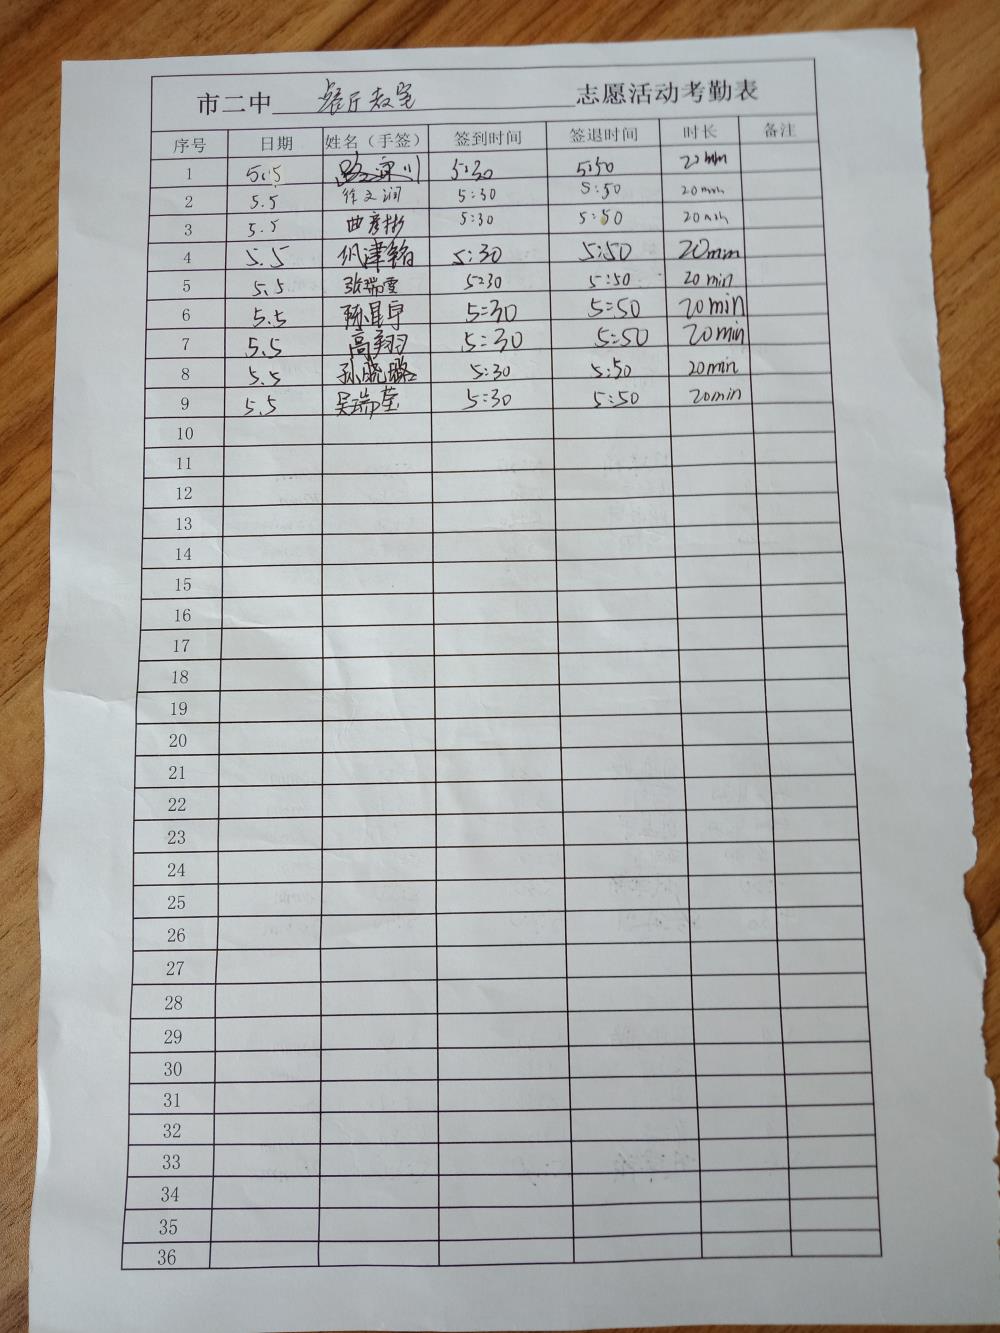 市二中 餐厅教室 志愿活动考勤表
序号 日期 姓名（手签） 签到时间 签退时间 时长 备注
1 5.5 5:30 5:50 20min
2 5.5 徐文润 5:30 5:50 20min
3 5.5 曲彦彬 5:30 5:50 20min
4 5.5 5:30 5:50 20min
5 5.5 张瑞雪 5:30 5:50 20min
6 5.5 陈星宇 5:30 5:50 20min
7 5.5 高翔 5:30 5:50 20min
8 5.5 孙晓璐 5:30 5:50 20min
9 5.5 吴瑞莹 5:30 5:50 20min
10
11
12
13
14
15
16
17
18
19
20
21
22
23
24
25
26
27
28
29
30
31
32
33
34
35
36